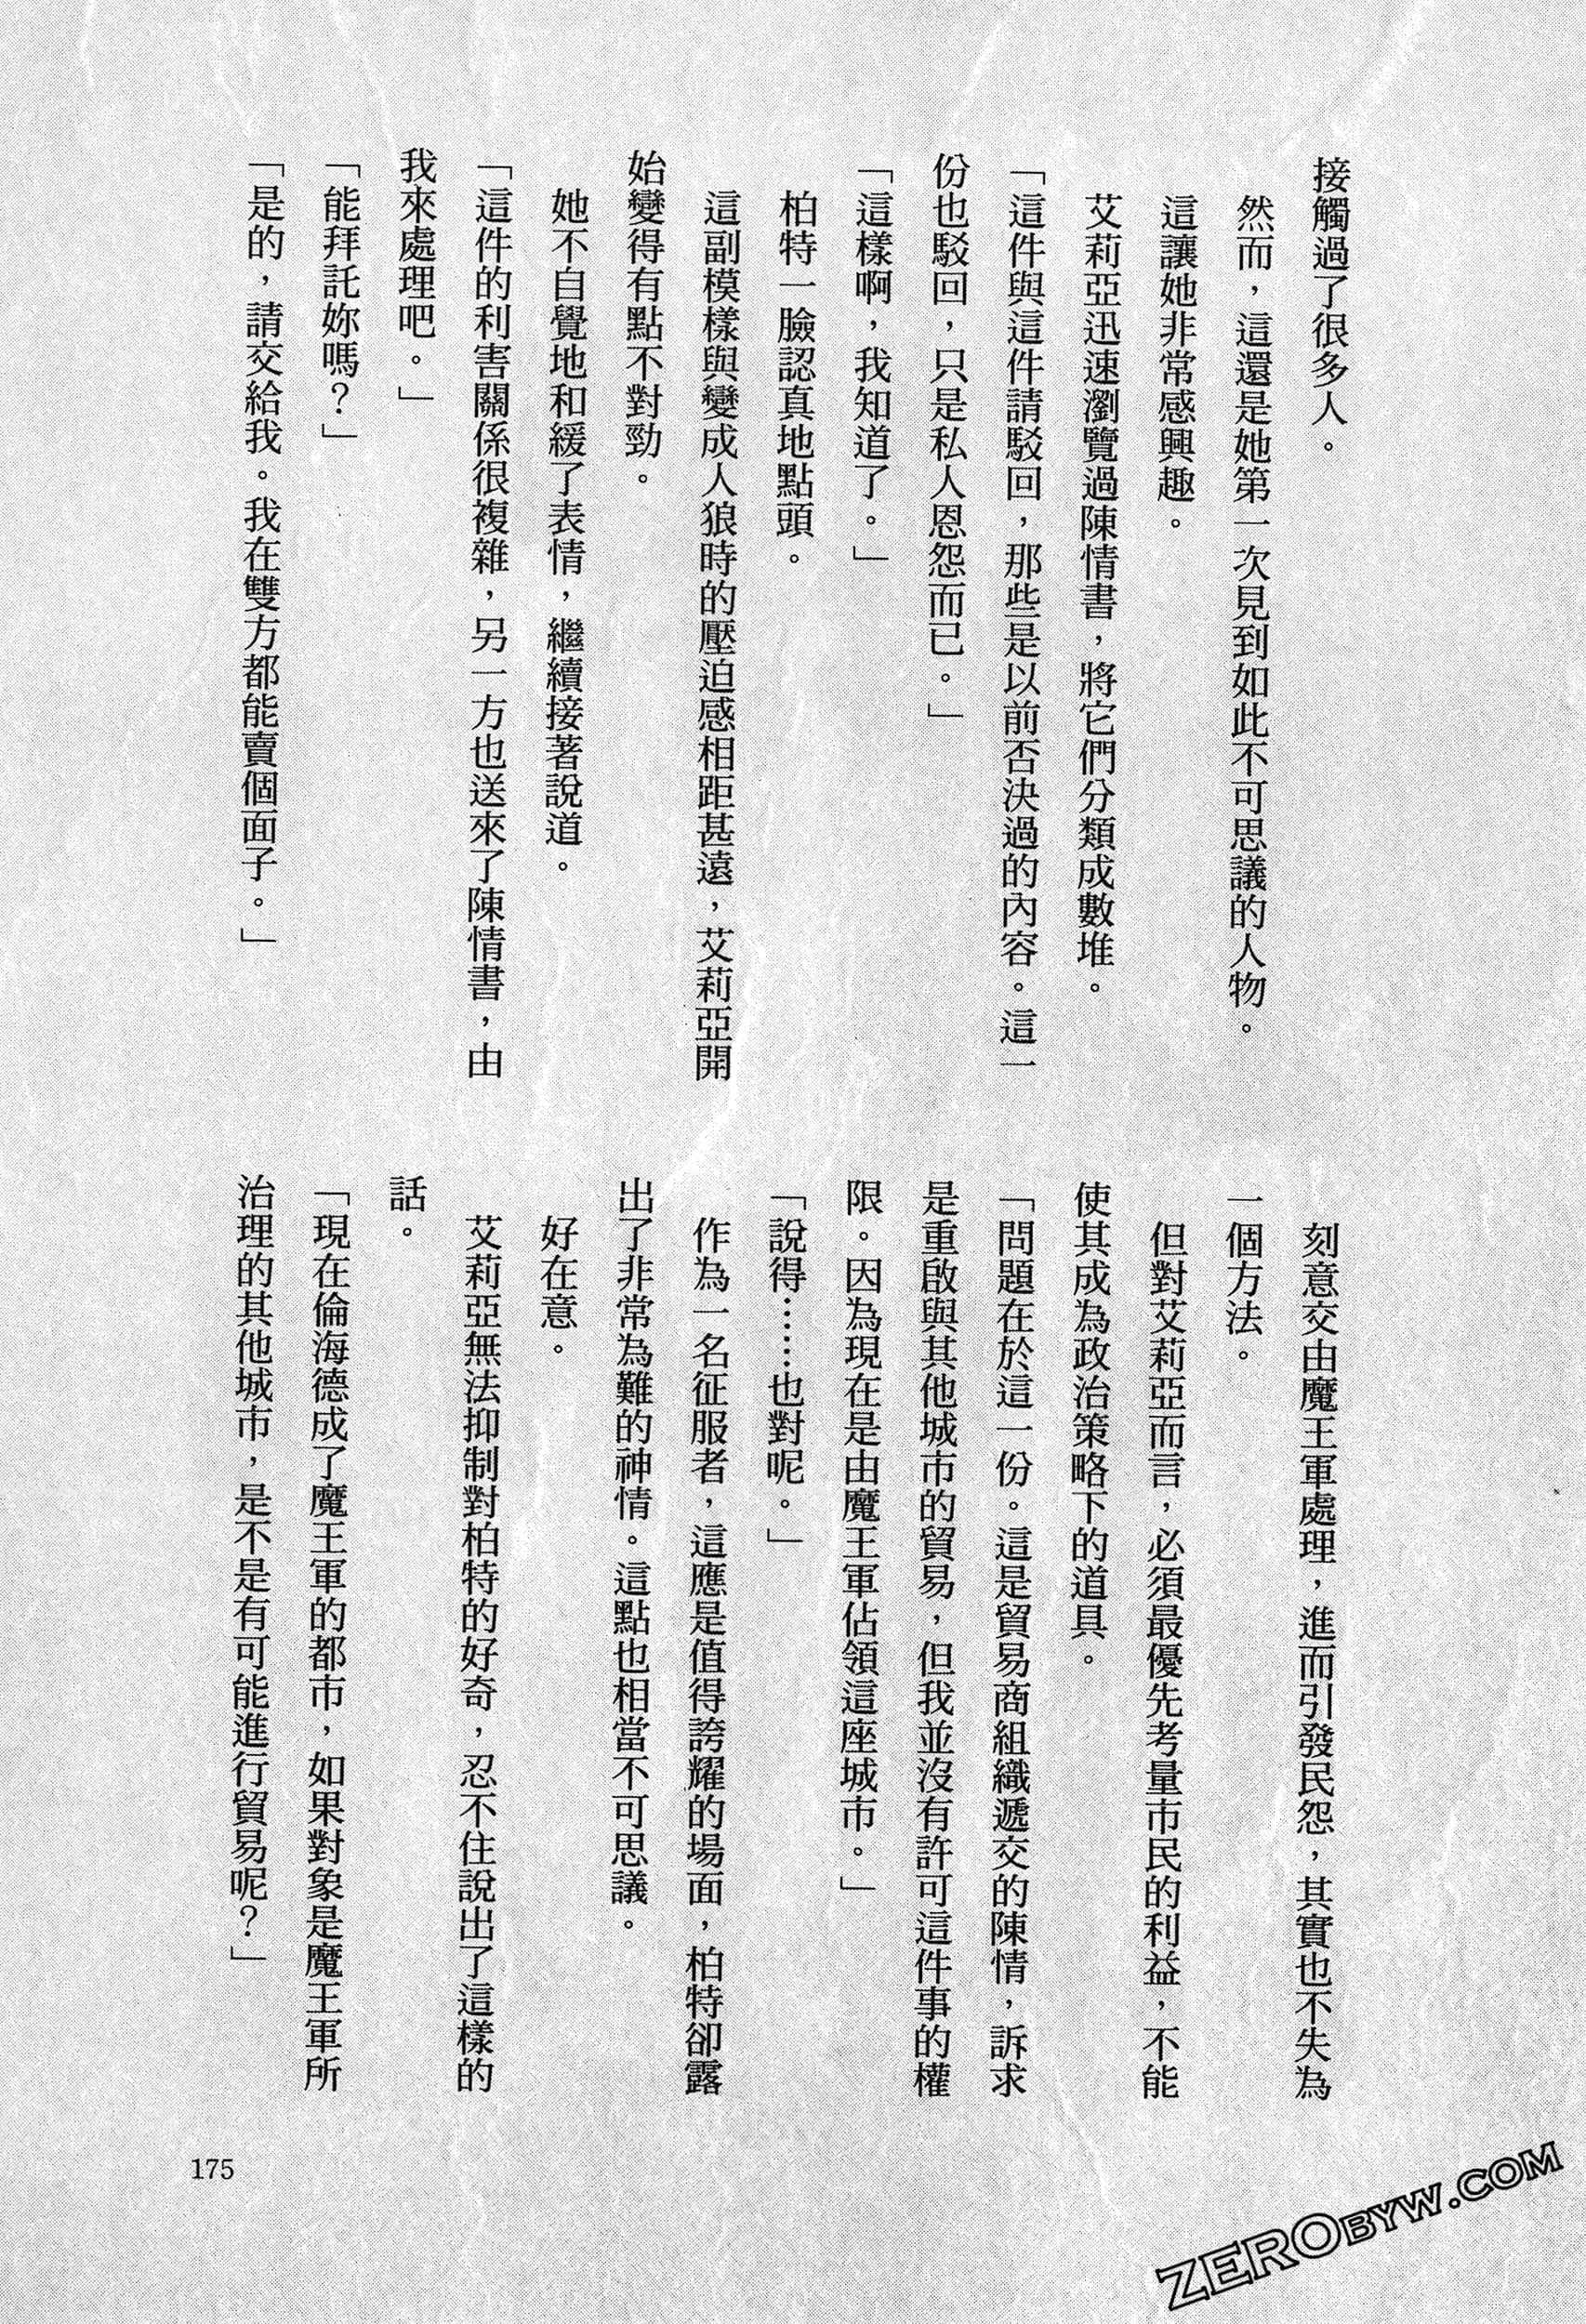 接觸過了很多人。
然而，這還是她第一次見到如此不可思議的人物。
這讓她非常感興趣。
艾莉亞迅速瀏覽過陳情書，將它們分類成數堆。
「這件與這件請駁回，那些是以前否決過的內容。這一
份也駁回，只是私人恩怨而已。」
「這樣啊，我知道了。」
柏特一臉認真地點頭。
這副模樣與變成人狼時的壓迫感相距甚遠，艾莉亞開
始變得有點不對勁。
她不自覺地和緩了表情，繼續接著說道。
「這件的利害關係很複雜，另一方也送來了陳情書，由
我來處理吧。」
「能拜託妳嗎？」
「是的，請交給我。我在雙方都能賣個面子。」
刻意交由魔王軍處理，進而引發民怨，其實也不失為
一個方法。
但對艾莉亞而言，必須最優先考量市民的利益，不能
使其成為政治策略下的道具。
「問題在於這一份。這是貿易商組織遞交的陳情，訴求
是重啟與其他城市的貿易，但我並沒有許可這件事的權
限。因為現在是由魔王軍佔領這座城市。」
「說得……也對呢。」
作為一名征服者，這應是值得誇耀的場面，柏特卻露
出了非常為難的神情。這點也相當不可思議。
好在意。
艾莉亞無法抑制對柏特的好奇，忍不住說出了這樣的
話。
「現在倫海德成了魔王軍的都市，如果對象是魔王軍所
治理的其他城市，是不是有可能進行貿易呢？」
175
ZEROBYW.COM